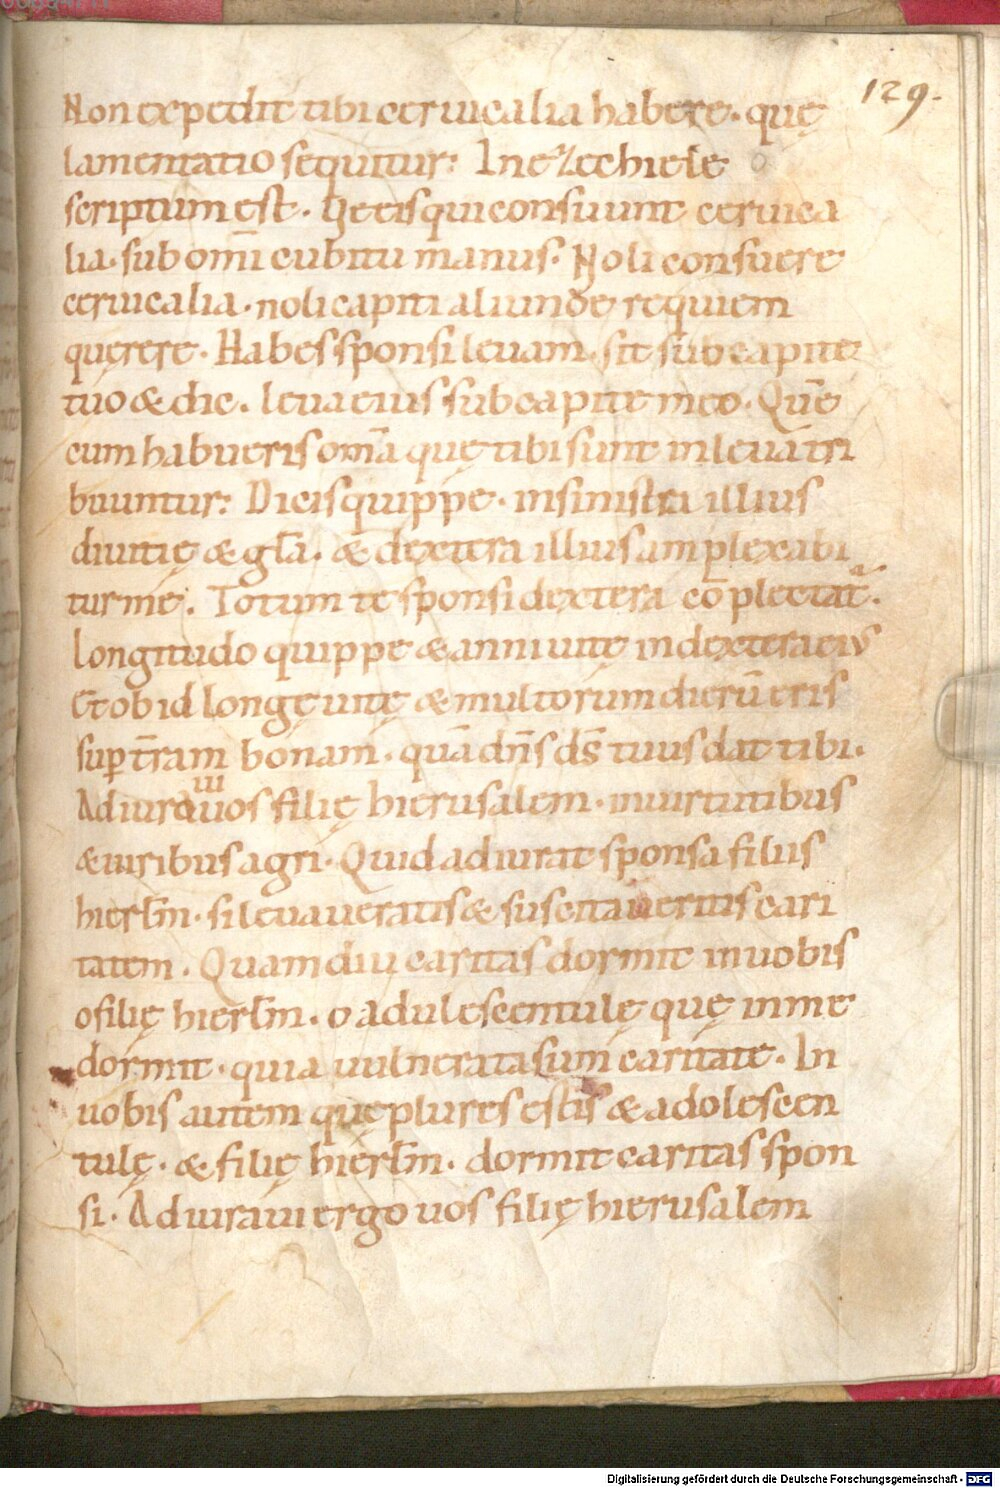 129.
Non expedit tibi ceruicalia habere. quę
lamentatio sequitur: In eZechiele
scriptum est. Ve eis qui consuunt ceruica
lia. sub om̅i cubitu manus. Noli consuere
ceruicalia. noli capiti aliunde requiem
quęrere. Habes sponsi leuam. sit sub capite
tuo & dic. leua eius sub capite meo. Quā
cum habueris om̅a quę tibi sunt in leua tri
buuntur: Dicis quippe. in sinistra illius
diuitię & gl̅a. & dextera illius amplexabi
tur me. Totum te sponsi dextera cō plectat᷑.
Longitudo quippe & anni uitę in dextera eius
Et ob id longę uitę & multorum dierū eris
sup̱ t̅ram bonam. quā dn̅s ds̅ tuus dat tibi.
Adiuraui uos filię hierusalem. in uirtutibus
& uiribus agri. Quid adiurat sponsa filias
hierl̅m. si leuaueratis & suscitaueritis cari
tatem. Quam diu caritas dormit in uobis
o filię hierl̅m. o adulescentulę quę in me
dormit. quia uulnerata sum caritate. In
uobis autem quę plures estis & adolescen
tulę. & filię hierl̅m. dormit caritas spon
si. Adiuraui ergo uos filię hierusalem
Digitalisierung gefördert durch die Deutsche Forschungsgemeinschaft - DFG